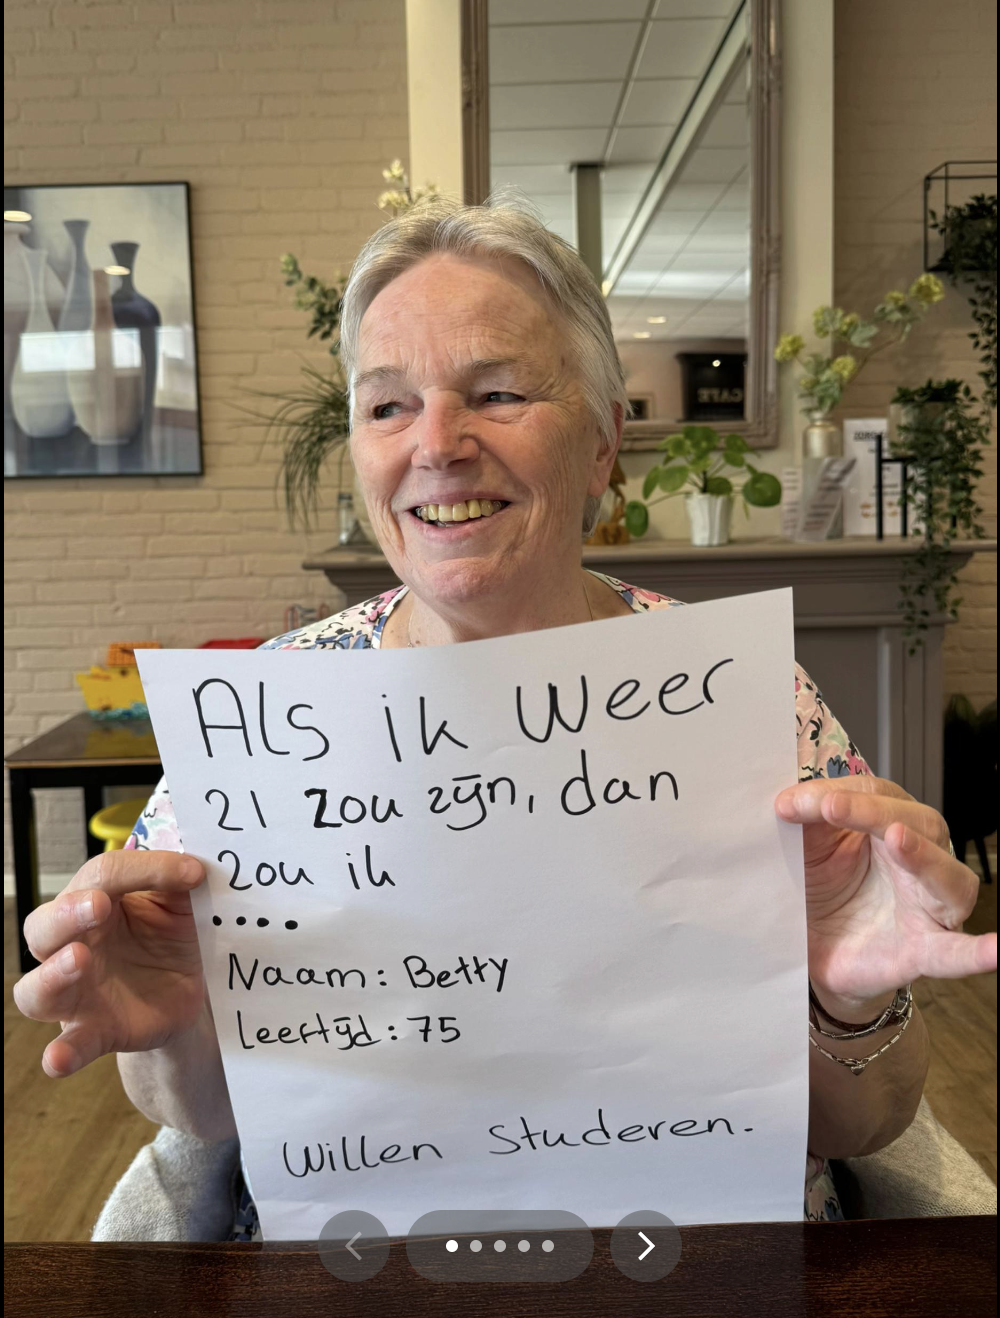 Als ik weer
21 zou zijn, dan
zou ik
....
Naam: Betty
Leeftijd: 75
Willen studeren.
CAFE